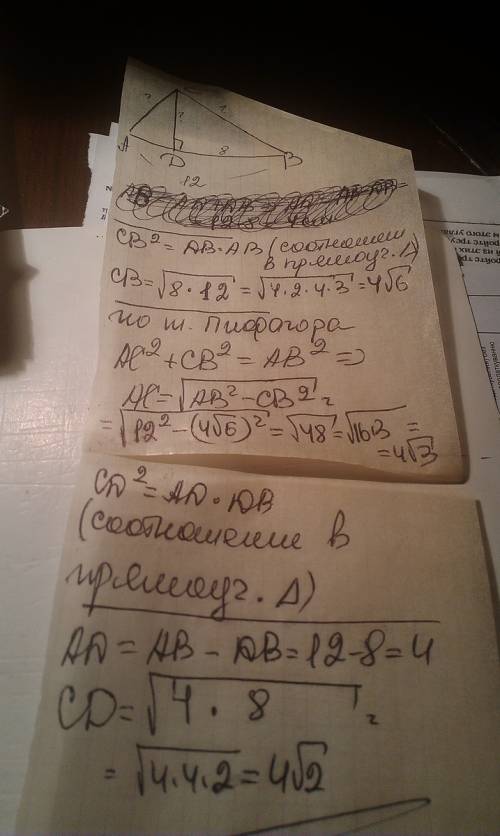 C
? ? ?
A D 8 B
12
CB² = AB·AB (соотношен
в прямоуг. Δ)
CB = √8·12 = √4·2·4·3 = 4√6
по т. Пифагора
AC² + CB² = AB² =>
AC = √AB² − CB² =
= √12² − (4√6)² = √48 = √16·3 =
= 4√3
CD² = AD · DB
(соотношение в
прямоуг. Δ)
AD = AB − DB = 12 − 8 = 4
CD = √4 · 8 =
= √4·4·2 = 4√2